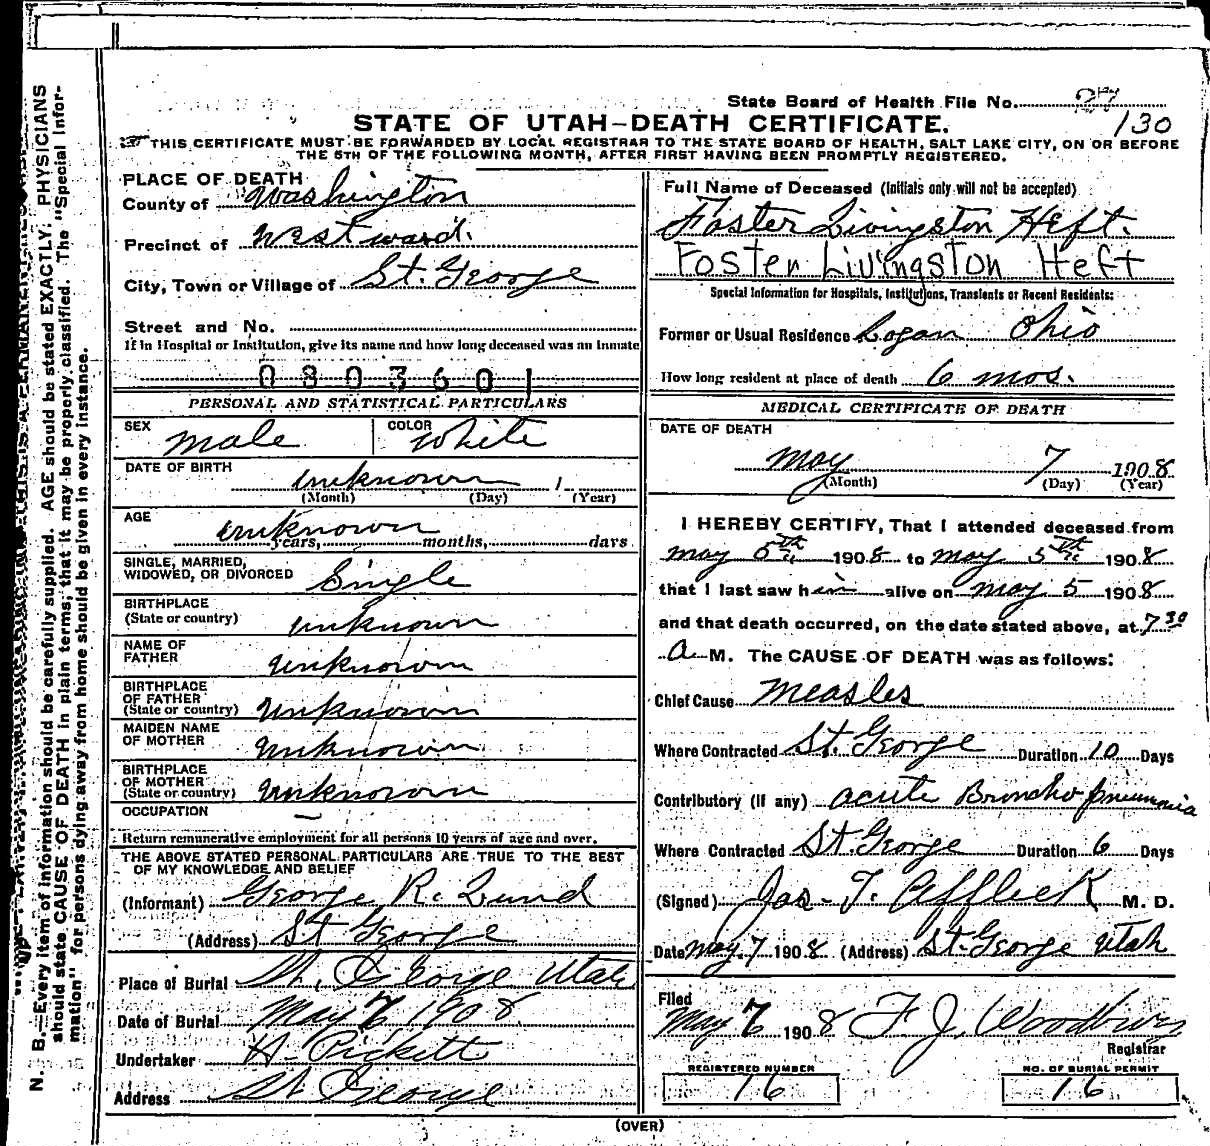 State Board of Health File No.
130
STATE OF UTAH-DEATH CERTIFICATE.
THIS CERTIFICATE MUST BE FORWARDED BY LOCAL REGISTRAR TO THE STATE BOARD OF HEALTH, SALT LAKE CITY, ON OR BEFORE
THE 5TH OF THE FOLLOWING MONTH, AFTER FIRST HAVING BEEN PROMPTLY REGISTERED.
PLACE OF DEATH
County of Washington
Precinct of West ward.
City, Town or Village of St. George
Street and No.
If in Hospital or Institution, give its name and how long deceased was an inmate
0803601
PERSONAL AND STATISTICAL PARTICULARS
SEX male COLOR White
DATE OF BIRTH unknown 1
(Month) (Day) (Year)
AGE unknown
years, months, days
SINGLE, MARRIED,
WIDOWED, OR DIVORCED Single
BIRTHPLACE
(State or country) unknown
NAME OF
FATHER unknown
BIRTHPLACE
OF FATHER
(State or country) unknown
MAIDEN NAME
OF MOTHER unknown
BIRTHPLACE
OF MOTHER
(State or country) unknown
OCCUPATION —
Return remunerative employment for all persons 10 years of age and over.
THE ABOVE STATED PERSONAL PARTICULARS ARE TRUE TO THE BEST
OF MY KNOWLEDGE AND BELIEF
(Informant) George R. Lund
(Address) St George
Place of Burial St. George Utah
Date of Burial May 7 1908
Undertaker H. Pickett
Address St George
Full Name of Deceased (Initials only will not be accepted)
Foster Livingston Heft.
Foster Livingston Heft
Special Information for Hospitals, Institutions, Transients or Recent Residents:
Former or Usual Residence Logan Ohio
How long resident at place of death 6 mos.
MEDICAL CERTIFICATE OF DEATH
DATE OF DEATH
May 7 1908
(Month) (Day) (Year)
I HEREBY CERTIFY, That I attended deceased from
May 1908 to May 5th 1908
that I last saw him alive on May 5 1908
and that death occurred, on the date stated above, at 7 30
a M. The CAUSE OF DEATH was as follows:
Chief Cause Measles
Where Contracted St. George Duration 10 Days
Contributory (if any) acute Broncho pneumonia
Where Contracted St. George Duration 6 Days
(Signed) Jas. T. Affleck M. D.
Date May 7 1908 (Address) St. George Utah
Filed
May 7 1908 F J Woodbury
Registrar
REGISTERED NUMBER
16
NO. OF BURIAL PERMIT
16
(OVER)
N. B.—Every item of information should be carefully supplied. AGE should be stated EXACTLY. PHYSICIANS
should state CAUSE OF DEATH in plain terms, that it may be properly classified. The "Special Infor-
mation" for persons dying away from home should be given in every instance.